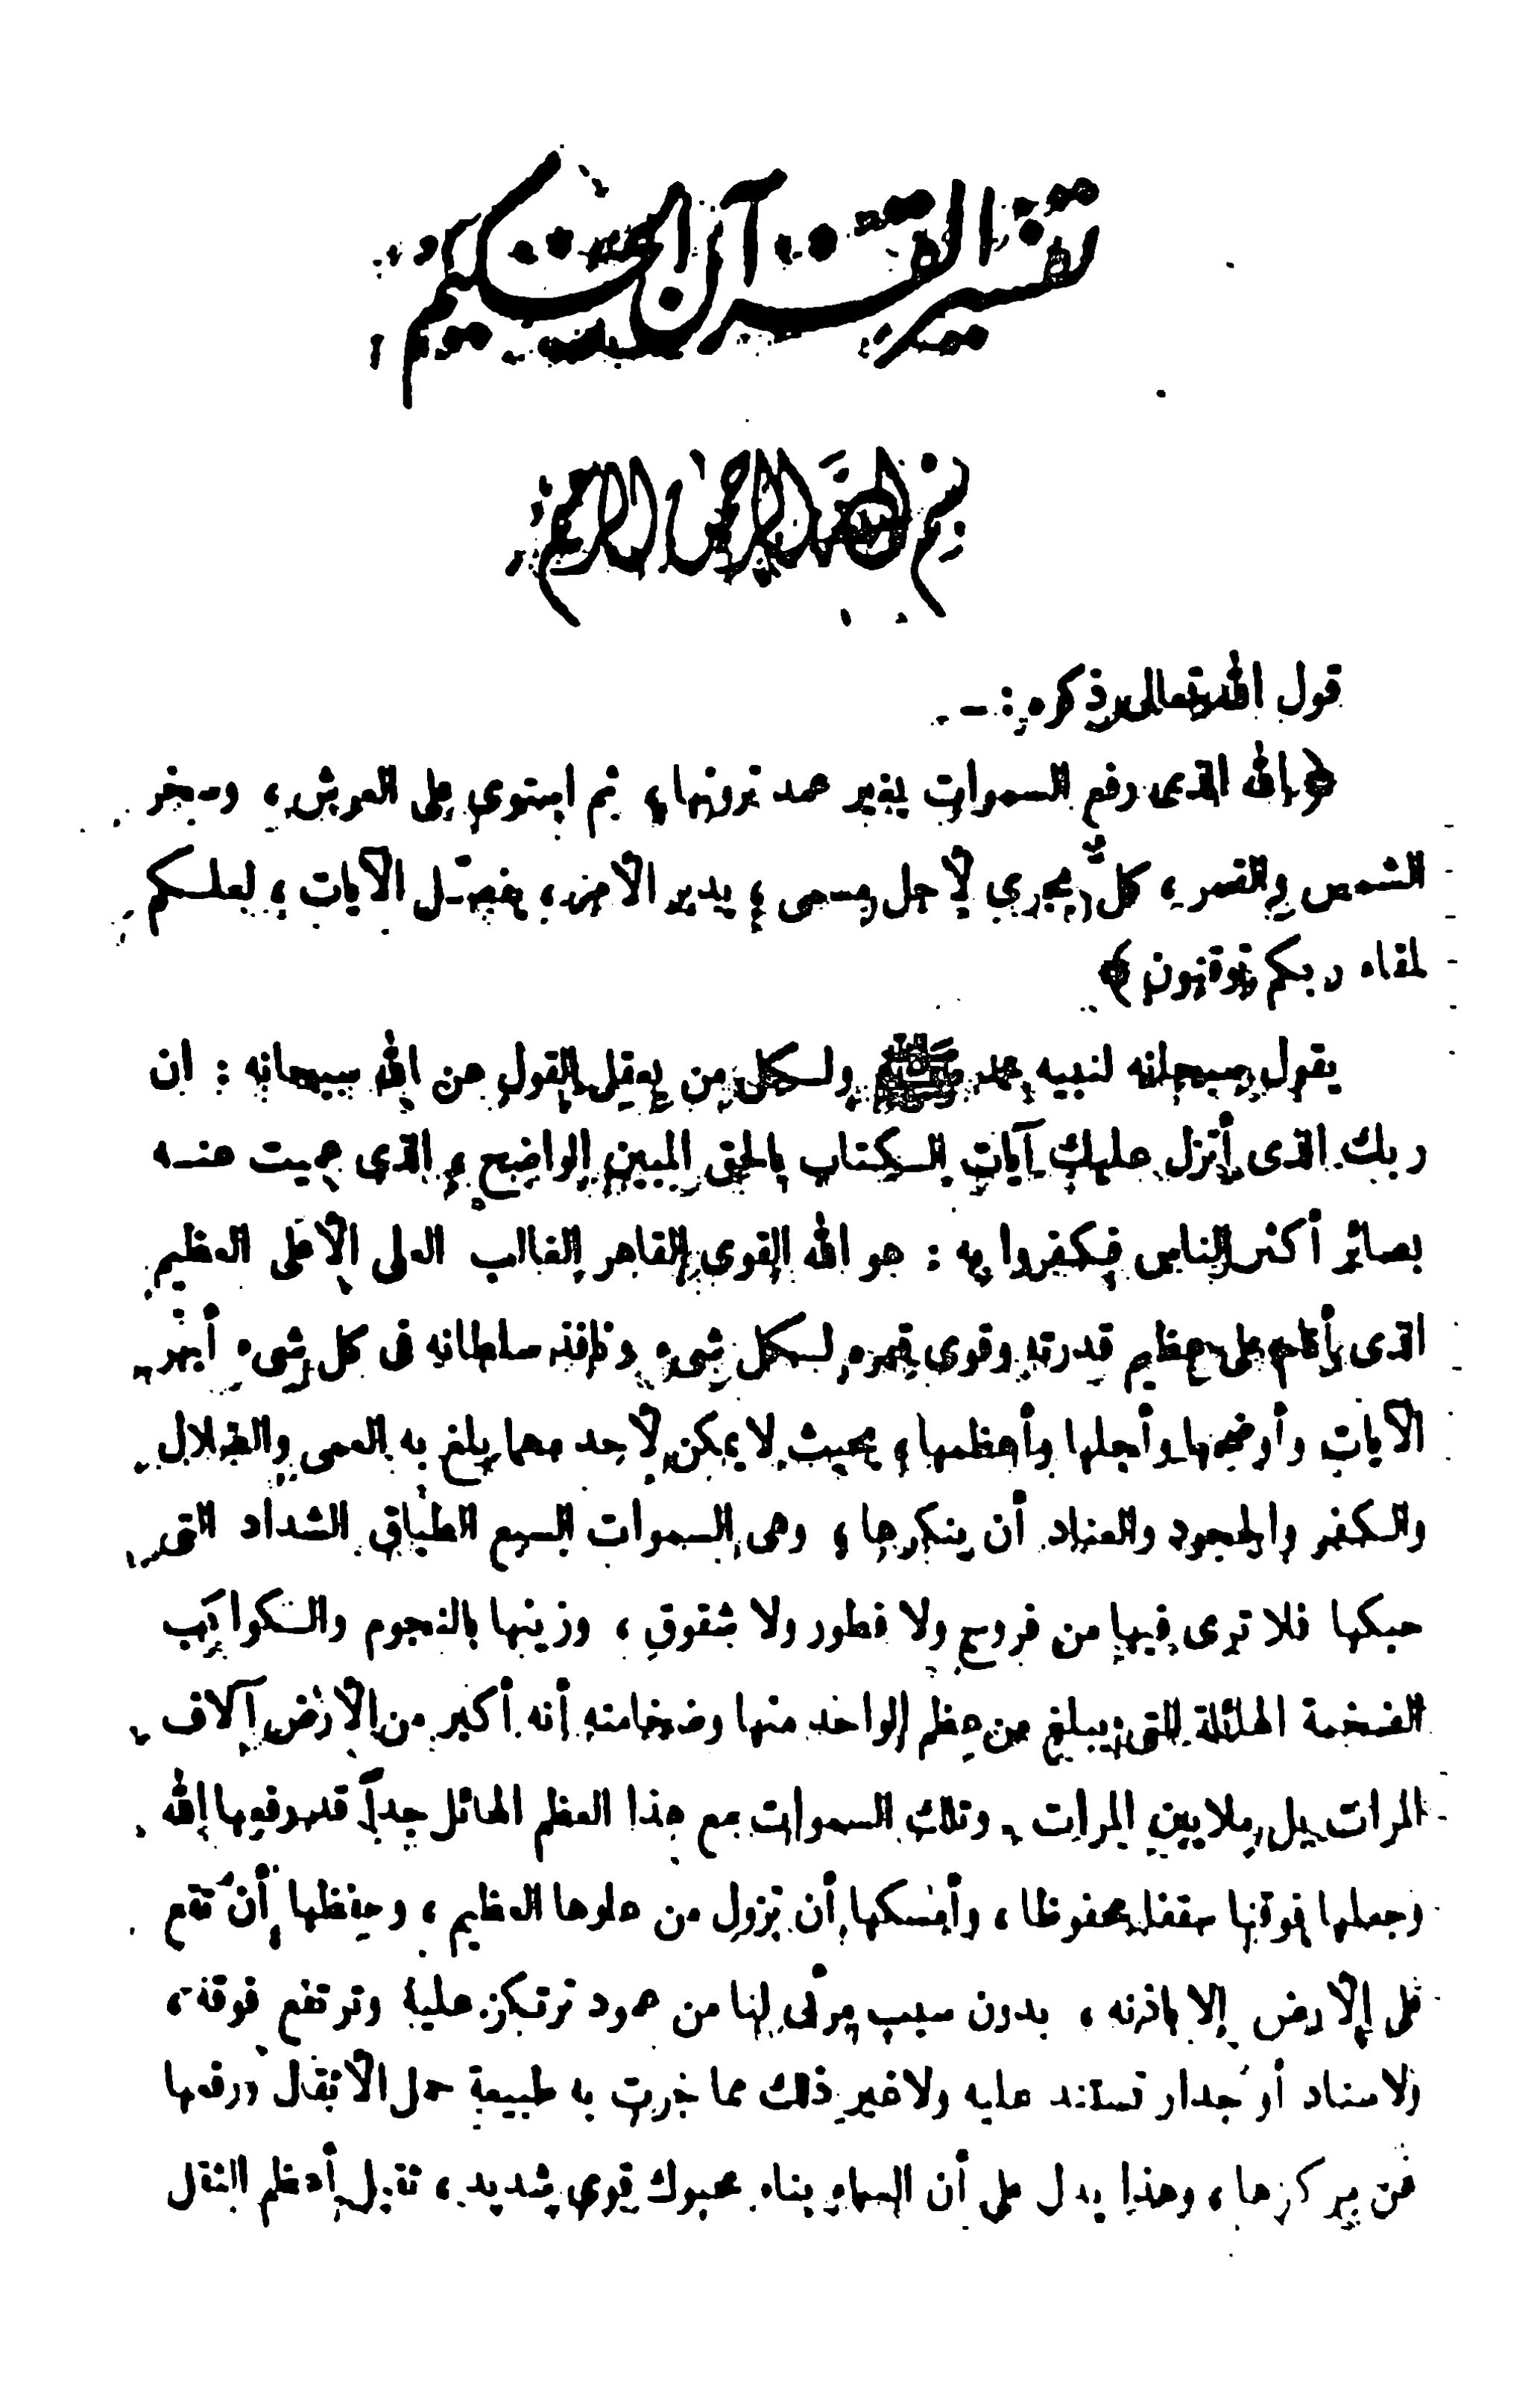 تفسير القرآن الحكيم
بسم الله الرحمن الرحيم
قول الله تعالى ذكره : -
﴿ الله الذى رفع السموات بغير عمد ترونها ، ثم استوى على العرش ، وسخر
الشمس والقمر ، كلٌّ يجرى لأجل مسمى ، يدبر الأمر ، يفصّل الآيات ، لعلكم
بلقاء ربكم توقنون ﴾
يقول سبحانه لنبيه محمد ﷺ ولكل من يعقل القول عن الله سبحانه : ان
ربك الذى أنزل عليك آيات الكتاب بالحق المبين الواضح ، الذى عميت عنه
بصائر أكثر الناس فكفروا به : هو الله القوى القاهر الغالب العلى الأعلى العظيم
الذى أقام على عظيم قدرته وقوى قهره لكل شىء ونافذ سلطانه فى كل شىء أبهر
الآيات وأوضحها وأجلها وأعظمها ، بحيث لا يمكن لأحد مهما يبلغ به العمى والضلال
والكفر والجحود والعناد أن ينكرها ، وهى السموات السبع الطباق الشداد التى
حبكها فلا ترى فيها من فروج ولا فطور ولا شقوق ، وزينها بالنجوم والكواكب
الضخمة الهائلة التى يبلغ من عظم الواحد منها وضخامته أنه أكبر من الأرض آلاف
المرات بل ملايين المرات . وتلك السموات مع هذا العظم الهائل جداً قد رفعها الله
وجعلها فوقنا سقفا محفوظا ، وأمسكها أن تزول من علوها العظيم ، وحفظها أن تقع
على الأرض إلا بإذنه ، بدون سبب مرئى لنا من عمود ترتكز عليه وترتفع فوقه ،
ولا سناد أو جدار تستند عليه ولا غير ذلك مما جرت به طبيعة حمل الأثقال ورفعها
عن مركزها ، وهذا يدل على أن السماء بناء محبوك قوى شديد ، ثقيل أعظم الثقل